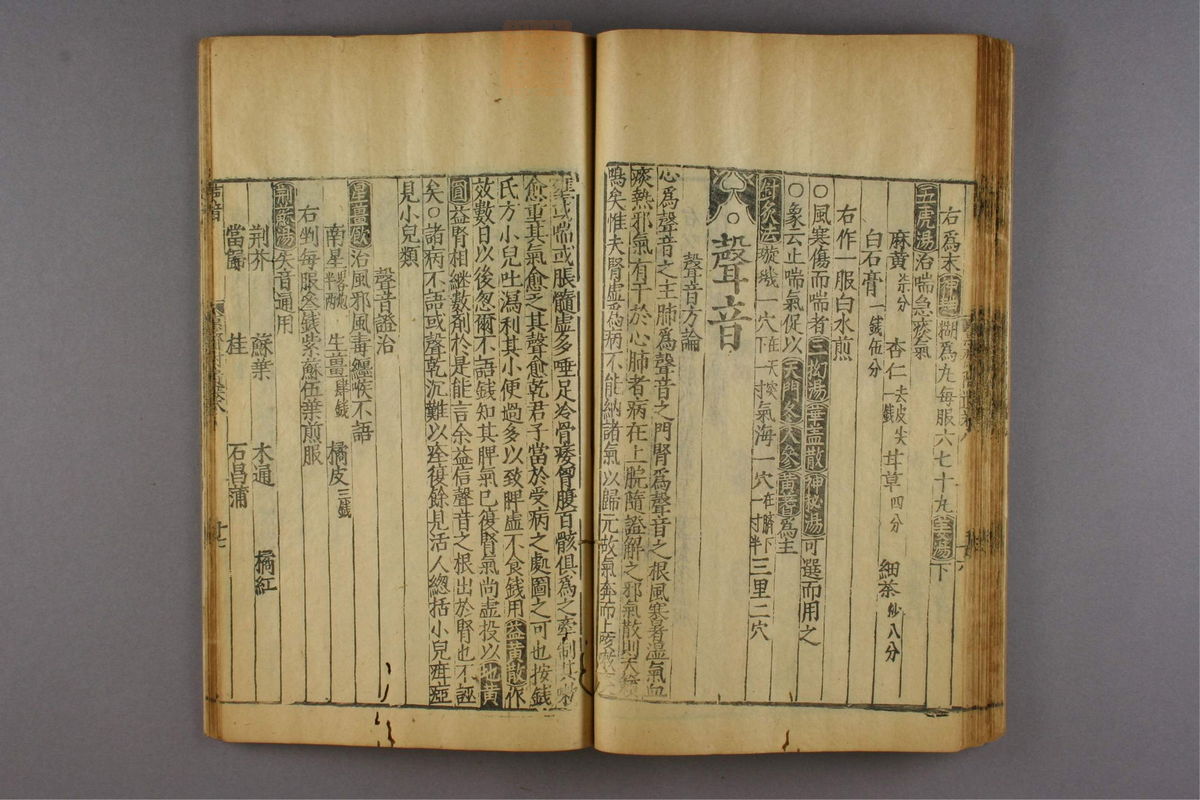 右爲末神麯糊爲丸每服六七十丸生姜湯下
五虎湯治喘急痰氣
麻黃七分 杏仁去皮尖一錢 甘草四分 細茶炒八分
白石膏一錢伍分
右作一服白水煎
○風寒傷而喘者三拗湯華蓋散神秘湯可選而用之
○象云止喘氣促以天門冬人參黃耆爲主
針灸法璇璣一穴在天突下一寸氣海一穴在臍下一寸半三里二穴
聲音
聲音方論
心爲聲音之主肺爲聲音之門腎爲聲音之根風寒暑濕氣血
痰熱邪氣有干於心肺者病在上脘隨證解之邪氣散則天籟
鳴矣惟夫腎虛爲病不能納諸氣以歸元故氣奔而上
或喘或脹髓虛多唾足冷骨痿胷腹百骸俱爲之牽制其嗽
愈重其氣愈乏其聲愈乾君子當於受病之處圖之可也按錢
氏方小兒吐瀉利其小便過多以致脾虛不食錢用益黃散作
效數日以後忽爾不語錢知其脾氣已復腎氣尚虛投以地黃
圓益腎相継數劑於是能言余益信聲音之根出於腎也不誣
矣○諸病不語或聲乾沉難以痊復餘見活人總括小兒瘖瘂
見小兒類
聲音證治
星薑飲治風邪風毒纏喉不語
南星 生薑肆錢 橘皮三錢
右剉每服叁錢紫蘇伍葉煎服
荊蘇湯失音通用
荆芥 蘇葉 木通 橘紅
當歸 桂 石昌蒲